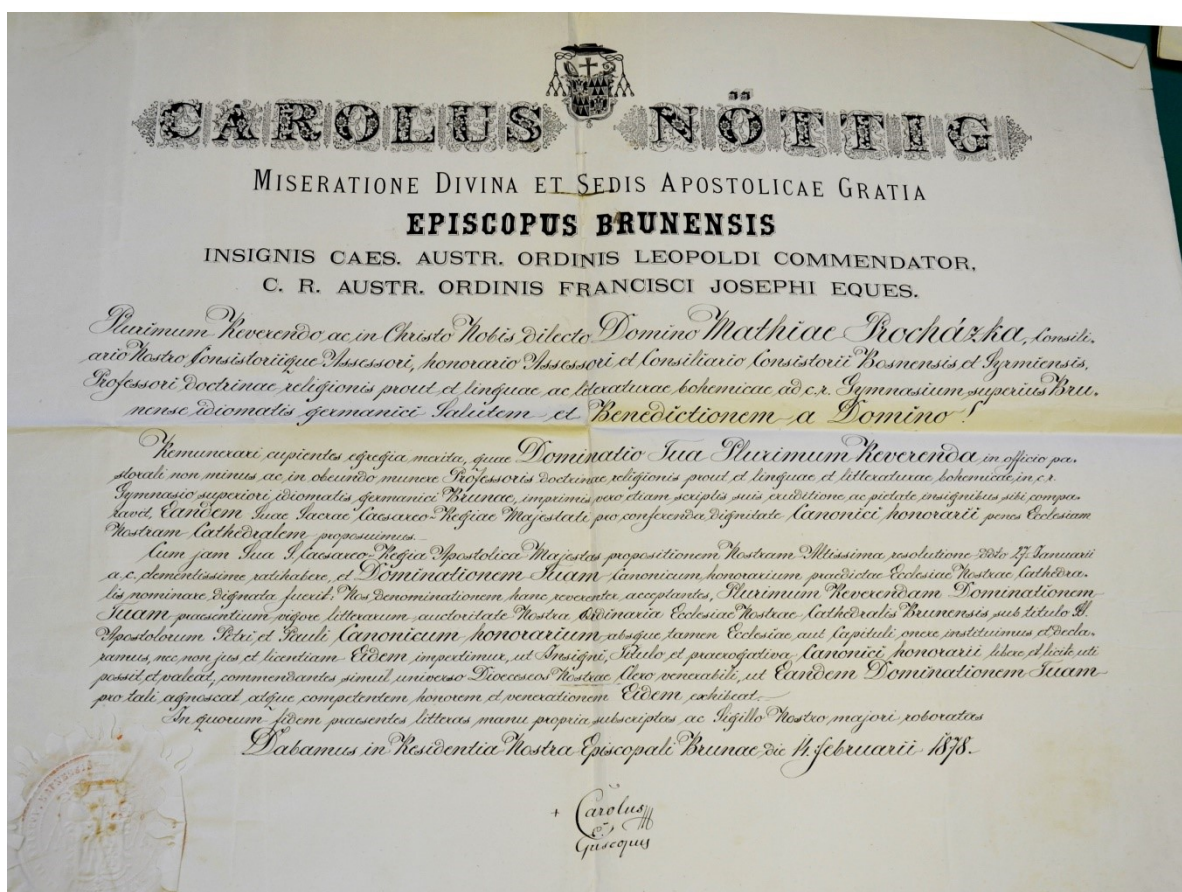 CAROLUS NÖTTIG
MISERATIONE DIVINA ET SEDIS APOSTOLICAE GRATIA
EPISCOPUS BRUNENSIS
INSIGNIS CAES. AUSTR. ORDINIS LEOPOLDI COMMENDATOR,
C. R. AUSTR. ORDINIS FRANCISCI JOSEPHI EQUES.
Plurimum Reverendo ac in Christo Nobis dilecto Domino Mathiae Procházka, Consili-
ario Nostro Consistoriique Assessori, honorario Assessori et Consiliario Consistorii Bosnensis et Syrmiensis,
Professori doctrinae religionis prout et linguae ac literaturae bohemicae ad c. r. Gymnasium superius Bru-
nense idiomatis germanici Salutem et Benedictionem a Domino!
Remunerari cupientes egregia merita, quae Dominatio Tua Plurimum Reverenda in officio pa-
storali non minus ac in obeundo munere Professoris doctrinae religionis prout et linguae et litteraturae bohemicae, in c. r.
Gymnasio superiori idiomatis germanici Brunae, imprimis vero etiam scriptis suis eruditione ac pietate insignibus sibi compa-
ravit, Eandem Suae Sacrae Caesareo-Regiae Majestati pro conferenda dignitate Canonici honorarii penes Ecclesiam
Nostram Cathedralem proposuimus.
Cum jam Sua S. Caesareo-Regia Apostolica Majestas propositionem Nostram Altissima resolutione ddto 27. Januarii
a. c. clementissime ratihabere, et Dominationem Tuam Canonicum honorarium praedictae Ecclesiae Nostrae Cathedra-
lis nominare dignata fuerit: Nos denominationem hanc reverenter acceptantes, Plurimum Reverendam Dominationem
Tuam praesentium vigore litterarum auctoritate Nostra Ordinaria Ecclesiae Nostrae Cathedralis Brunensis sub titulo SS.
Apostolorum Petri et Pauli Canonicum honorarium absque tamen Ecclesiae, aut Capituli onere instituimus et decla-
ramus, nec non jus et licentiam Eidem impertimur, ut Insigni, Titulo et praerogativa Canonici honorarii libere et licite uti
possit et valeat, commendantes simul universo Dioeceseos Nostrae Clero venerabili, ut Eandem Dominationem Tuam
pro tali agnoscat atque competentem honorem et venerationem Eidem exhibeat.
In quorum fidem praesentes litteras manu propria subscriptas, ac Sigillo Nostro majori roboratas
Dabamus in Residentia Nostra Episcopali Brunae die 14. februarii 1878.
+ Carolus
Episcopus